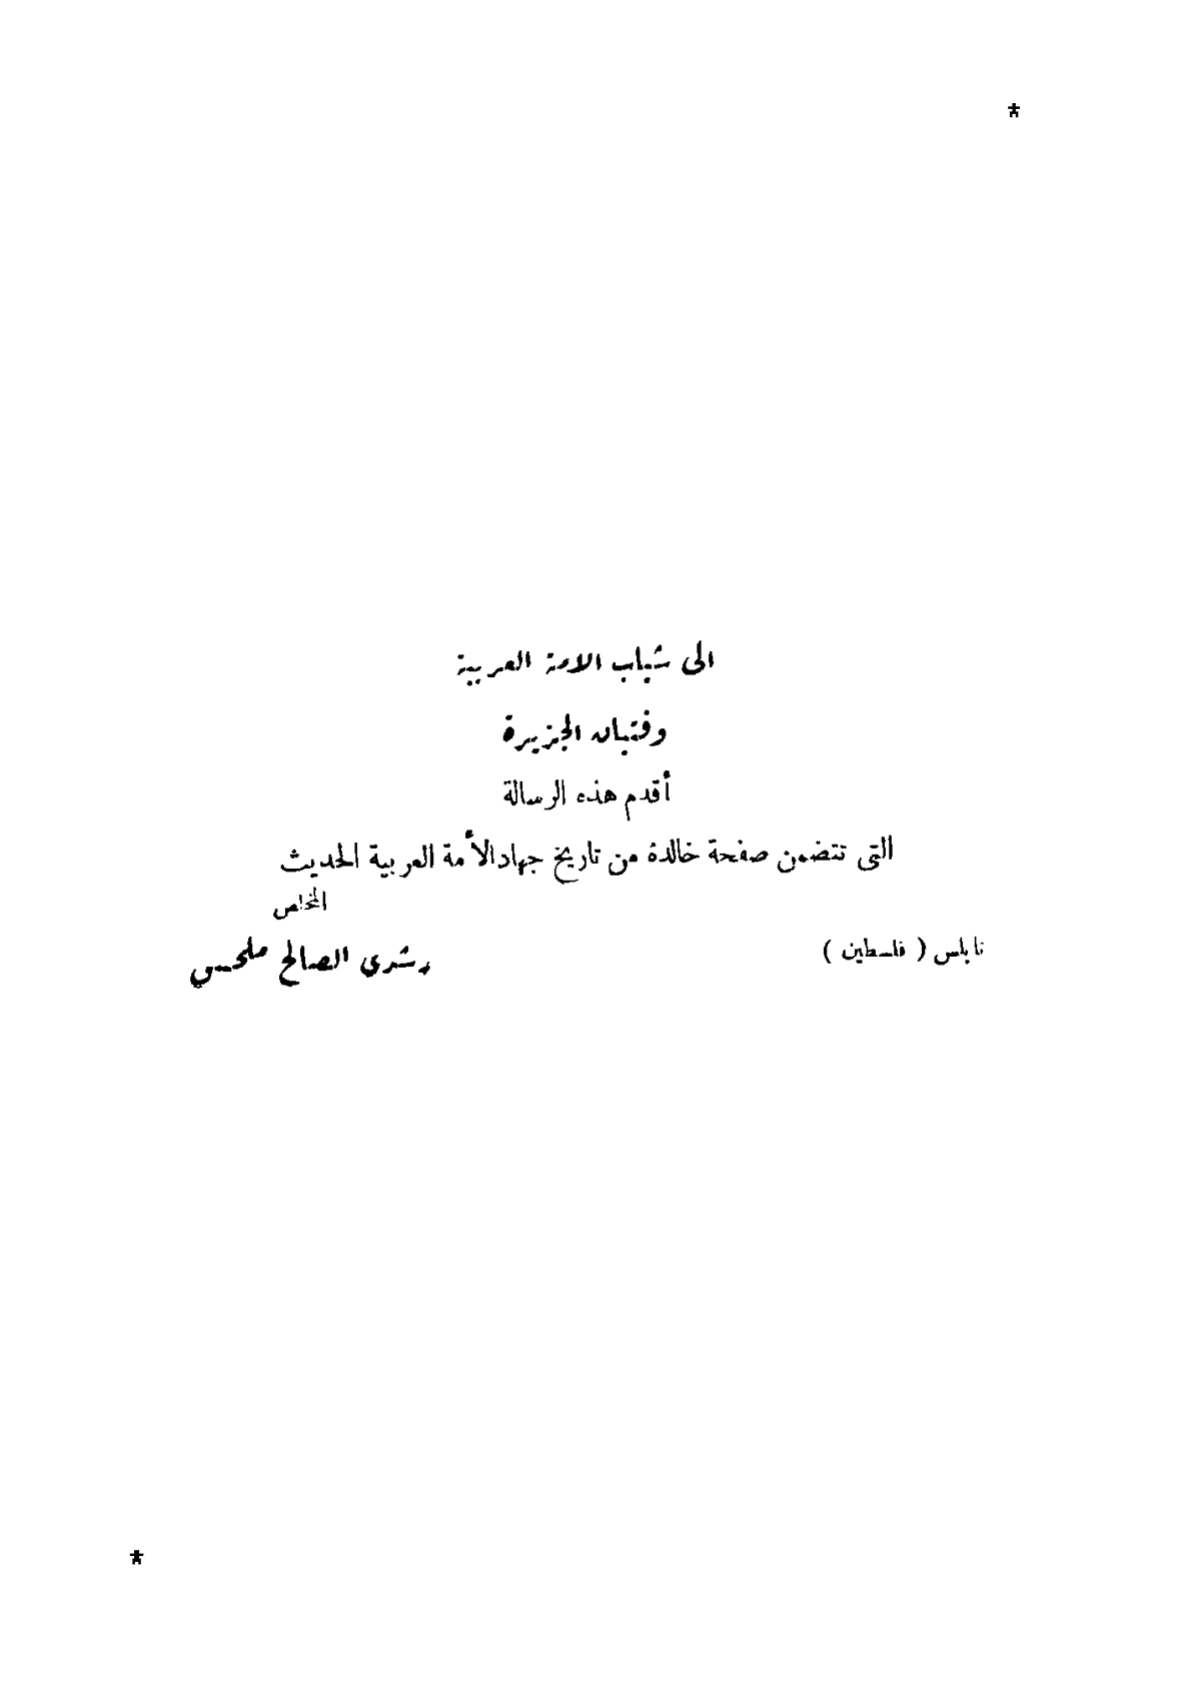 *
الى شباب الامة العربية
وفتيان الجزيرة
أقدم هذه الرسالة
التى تتضمن صفحة خالدة من تاريخ جهاد الأمة العربية الحديث
المخلص
نابلس ( فلسطين ) رشدي الصالح ملحس
*